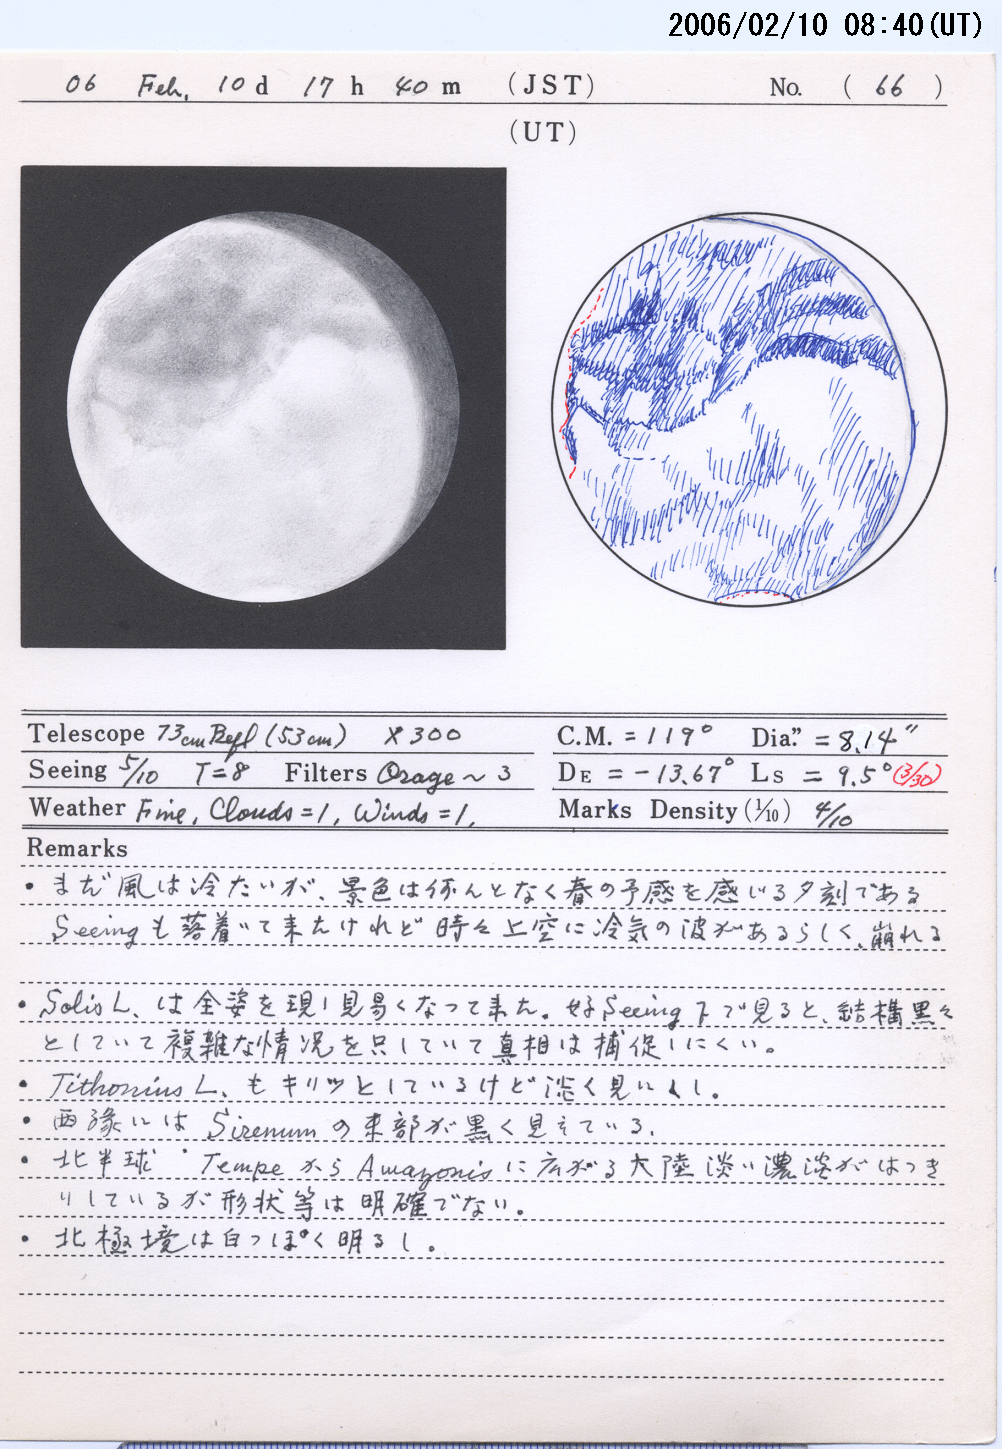 2006/02/10 08:40(UT)
06 Feb. 10 d 17 h 40 m (JST) No. ( 66 )
(UT)
Telescope 73cm Refl (53cm) ×300 C.M. = 119° Dia." = 8.14"
Seeing 5/10 T=8 Filters Orage~3 DE = -13.67° Ls = 9.5° (3/30)
Weather Fine, Clouds=1, Winds=1, Marks Density (1/10) 4/10
Remarks
• まだ風は冷たいが、景色は何んとなく春の予感を感じる夕刻である
Seeingも落着いて来たけれど時々上空に冷気の波があるらしく、崩れる
• Solis L. は全姿を現し見易くなって来た。好Seeing下で見ると、結構黒々
としていて複雑な情況を呈していて真相は捕促しにくい。
• Tithonius L. もキリッとしているけど淡く見にくし。
• 西縁には Sirenum の東部が黒く見えている.
• 北半球 Tempe から Amazonis に広がる大陸淡い濃淡がはっき
りしているが形状等は明確でない。
• 北極境は白っぽく明るし。